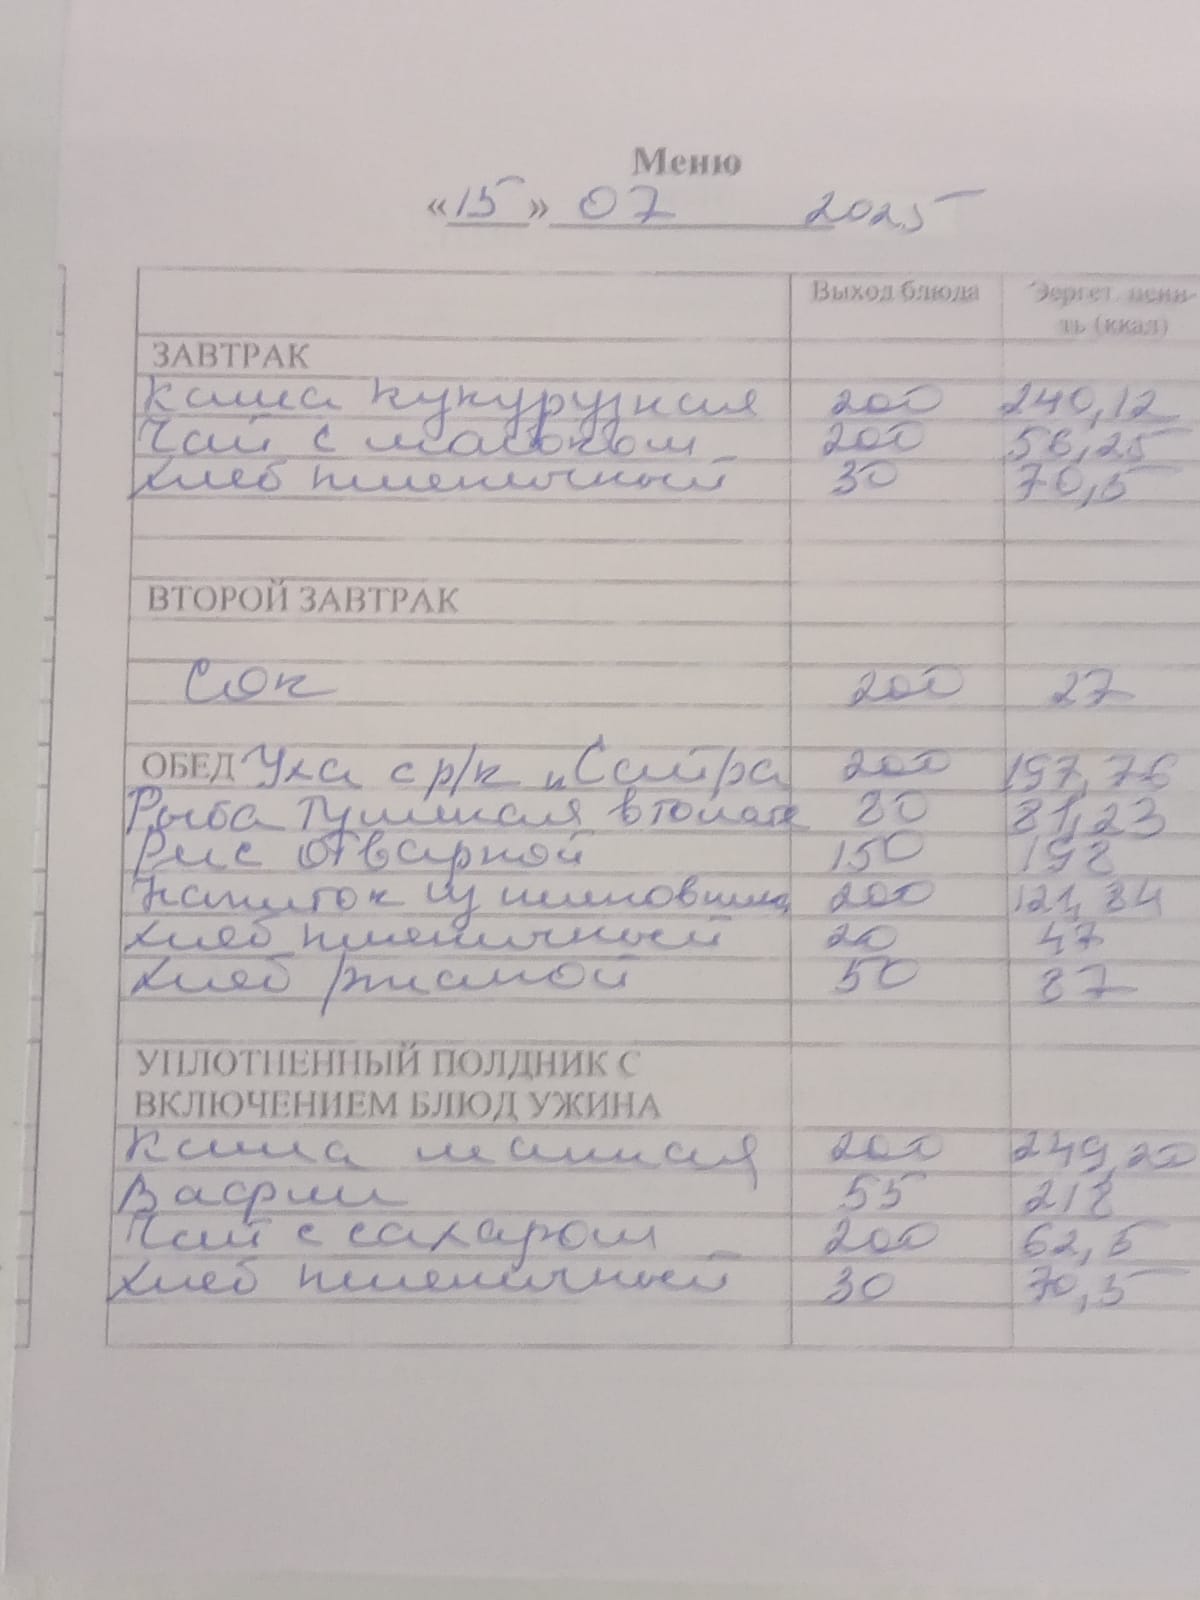 Меню
«15» 07 2025
Выход блюда Эергет. ценн-ть (ккал)
ЗАВТРАК
Каша кукурузная 200 240,12
Чай с молоком 200 56,25
Хлеб пшеничный 30 70,5
ВТОРОЙ ЗАВТРАК
Сок 200 27
ОБЕД Уха с р/к "Сайра 200 197,76
Рыба тушеная в томате 80 81,23
Рис отварной 150 198
Напиток из шиповника 200 121,84
Хлеб пшеничный 20 47
Хлеб ржаной 50 87
УПЛОТНЕННЫЙ ПОЛДНИК С
ВКЛЮЧЕНИЕМ БЛЮД УЖИНА
Каша манная 200 249,20
Вафли 55 218
Чай с сахаром 200 62,5
Хлеб пшеничный 30 70,5